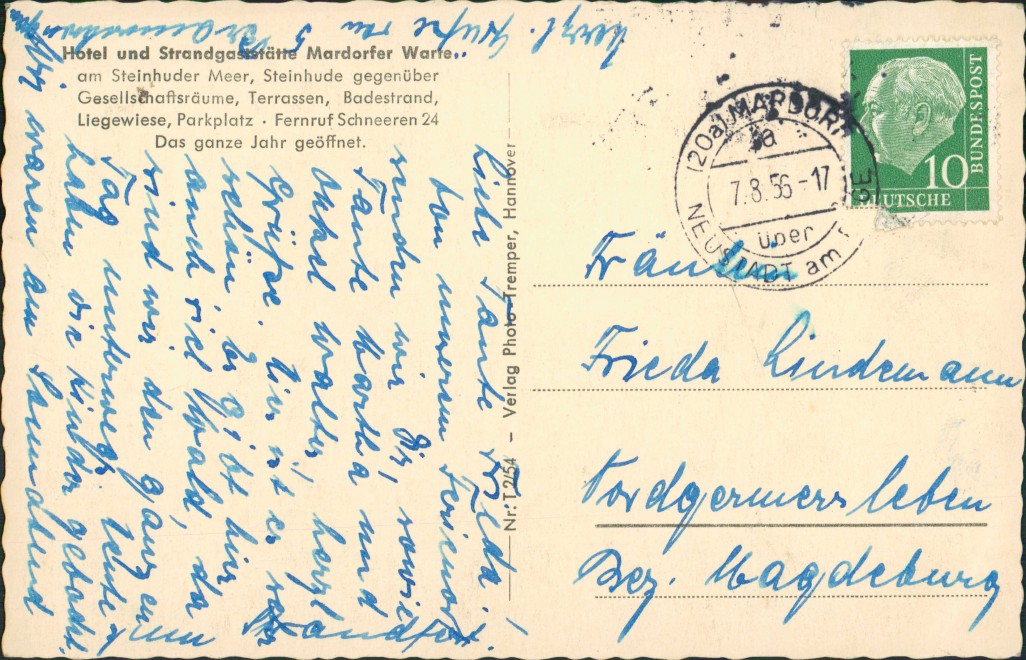 Hotel und Strandgaststätte Mardorfer Warte
am Steinhuder Meer, Steinhude gegenüber
Gesellschaftsräume, Terrassen, Badestrand,
Liegewiese, Parkplatz · Fernruf Schneeren 24
Das ganze Jahr geöffnet.
Liebe Tante Frieda!
Von unserem Ferienort
senden wir Dir, sowie
Tante Martha und
Onkel Walter, herzl.
Grüße. Hier ist es sehr
schön. Es gibt hier
auch viel Wald, da
sind wir den ganzen
Tag unterwegs. Heute
haben die Kinder gebadet.
Wir waren am Sonnabend
zum Strandfest.
Herzl. Grüße von 5
Nr. T 2/54 – Verlag Photo-Tremper, Hannover
(20a) MARDORF
a
7.8.56-17
über
NEUSTADT am
10
DEUTSCHE
BUNDESPOST
Fräulein
Frieda Lindemann
Nordgermersleben
Bez. Magdeburg